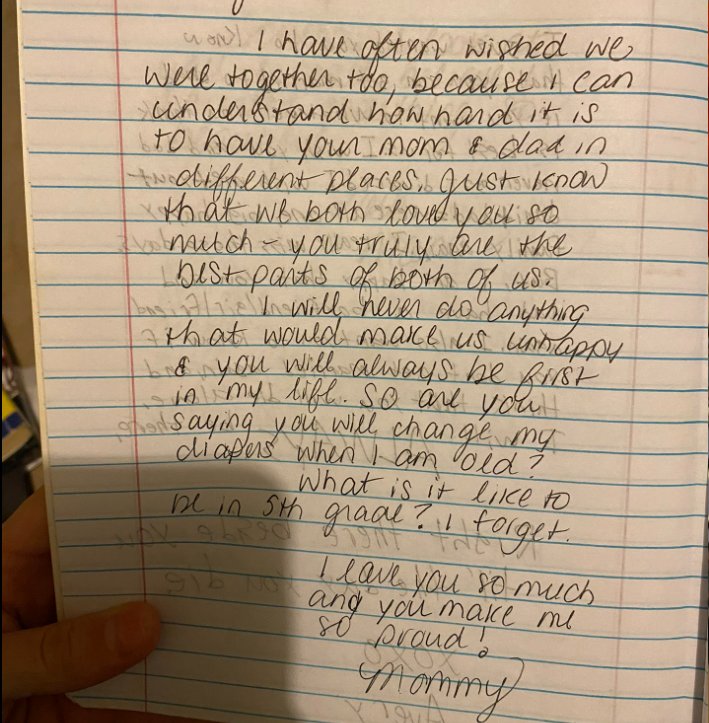 I have often wished we
were together too, because i can
understand how hard it is
to have your mom & dad in
different places. Just know
that we both love you so
much - you truly are the
best parts of both of us.
I will never do anything
that would make us unhappy
& you will always be first
in my life. So are you
saying you will change my
diapers when I am old?
What is it like to
be in 5th grade? I forget.
I love you so much
and you make me
so proud!
Mommy